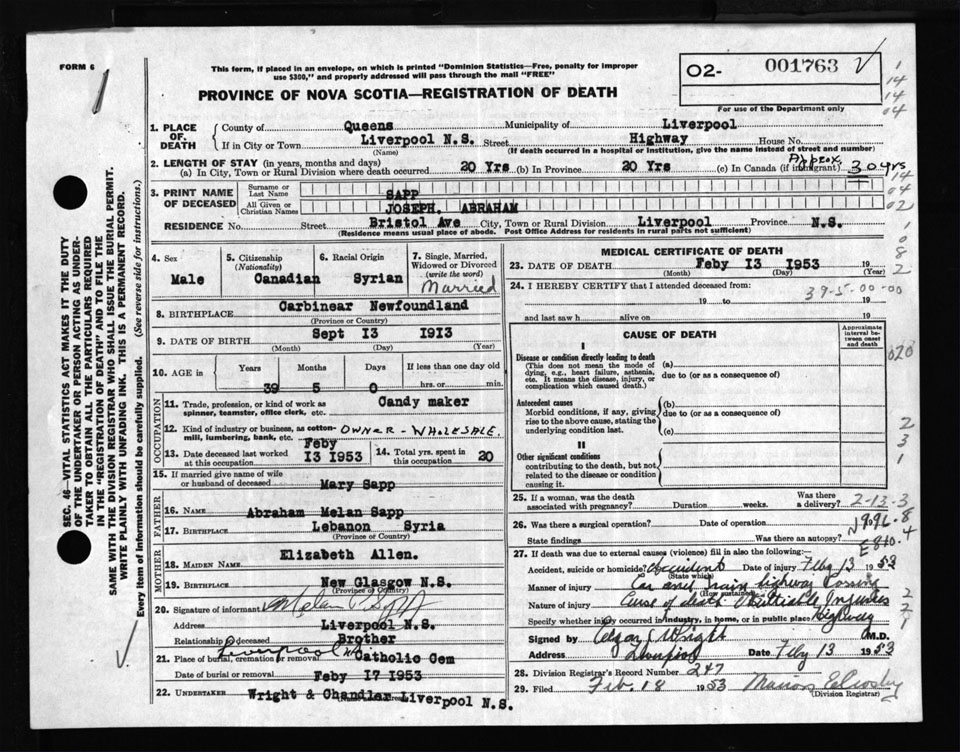 FORM 6
This form, if placed in an envelope, on which is printed "Dominion Statistics—Free, penalty for improper
use $300," and properly addressed will pass through the mail "FREE"
PROVINCE OF NOVA SCOTIA—REGISTRATION OF DEATH
02- 001763
For use of the Department only
1
14
14
04
14
04
02
1
0
8
2
070
2
3
1
2
2
1
SEC. 46—VITAL STATISTICS ACT MAKES IT THE DUTY
OF THE UNDERTAKER OR PERSON ACTING AS UNDER-
TAKER TO OBTAIN ALL THE PARTICULARS REQUIRED
IN THE "REGISTRATION OF DEATH" AND TO FILE THE
SAME WITH THE DIVISION REGISTRAR WHO SHALL ISSUE THE BURIAL PERMIT.
WRITE PLAINLY WITH UNFADING INK. THIS IS A PERMANENT RECORD.
Every item of information should be carefully supplied. (See reverse side for instructions.)
1. PLACE OF DEATH
County of Queens Municipality of Liverpool
If in City or Town Liverpool N.S. Street Highway House No.
(Name) (If death occurred in a hospital or institution, give the name instead of street and number)
2. LENGTH OF STAY (in years, months and days)
(a) In City, Town or Rural Division where death occurred 20 Yrs (b) In Province 20 Yrs (c) In Canada (if immigrant) Approx. 30 yrs
3. PRINT NAME OF DECEASED
Surname or Last Name SAPP
All Given or Christian Names JOSEPH. ABRAHAM
RESIDENCE No. Street Bristol Ave City, Town or Rural Division Liverpool Province N.S.
(Residence means usual place of abode. Post Office Address for residents in rural parts not sufficient)
4. Sex Male
5. Citizenship (Nationality) Canadian
6. Racial Origin Syrian
7. Single, Married, Widowed or Divorced (write the word) Married
8. BIRTHPLACE Carbinear Newfoundland
(Province or Country)
9. DATE OF BIRTH Sept 13 1913
(Month) (Day) (Year)
10. AGE in Years Months Days If less than one day old
39 5 0 hrs. or min.
OCCUPATION
11. Trade, profession or kind of work as spinner, teamster, office clerk, etc. Candy maker
12. Kind of industry or business, as cotton-mill, lumbering, bank, etc. OWNER - WHOLESALE.
13. Date deceased last worked at this occupation Feby 13 1953
14. Total yrs. spent in this occupation 20
15. If married give name of wife or husband of deceased Mary Sapp
FATHER
16. Name Abraham Melan Sapp
17. Birthplace Lebanon Syria
(Province or Country)
MOTHER
18. MAIDEN NAME Elizabeth Allen.
19. Birthplace New Glasgow N.S.
(Province or Country)
20. Signature of informant Melan Sapp
Address Liverpool N.S.
Relationship to deceased Brother
21. Place of burial, cremation or removal Liverpool NS Catholic Cem
Date of burial or removal Feby 17 1953
22. UNDERTAKER Wright & Chandler Liverpool N.S.
MEDICAL CERTIFICATE OF DEATH
23. DATE OF DEATH Feby 13 1953 19
(Month) (Day) (Year)
24. I HEREBY CERTIFY that I attended deceased from:
39-5-00-00
19 to 19
and last saw h alive on 19
CAUSE OF DEATH
Approximate interval between onset and death
I
Disease or condition directly leading to death
(This does not mean the mode of dying, e.g., heart failure, asthenia, etc. It means the disease, injury, or complication which caused death.)
(a)
due to (or as a consequence of)
Antecedent causes
Morbid conditions, if any, giving rise to the above cause, stating the underlying condition last.
(b)
due to (or as a consequence of)
(c)
II
Other significant conditions
contributing to the death, but not related to the disease or condition causing it.
25. If a woman, was the death associated with pregnancy? Duration weeks. Was there a delivery? 2-13-3
26. Was there a surgical operation? Date of operation
State findings Was there an autopsy?
N896-8
E810.4
27. If death was due to external causes (violence) fill in also the following:—
Accident, suicide or homicide? Accident Date of injury Feby 13 1953
(State which)
Manner of injury Car and train highway crossing
(How sustained)
Nature of injury Cause of death Multiple Injuries
Specify whether injury occurred in industry, in home, or in public place Highway
Signed by Wright M.D.
Address Liverpool Date Feby 13 1953
28. Division Registrar's Record Number 247
29. Filed Feb. 18 1953 Marion E Crosby
(Division Registrar)